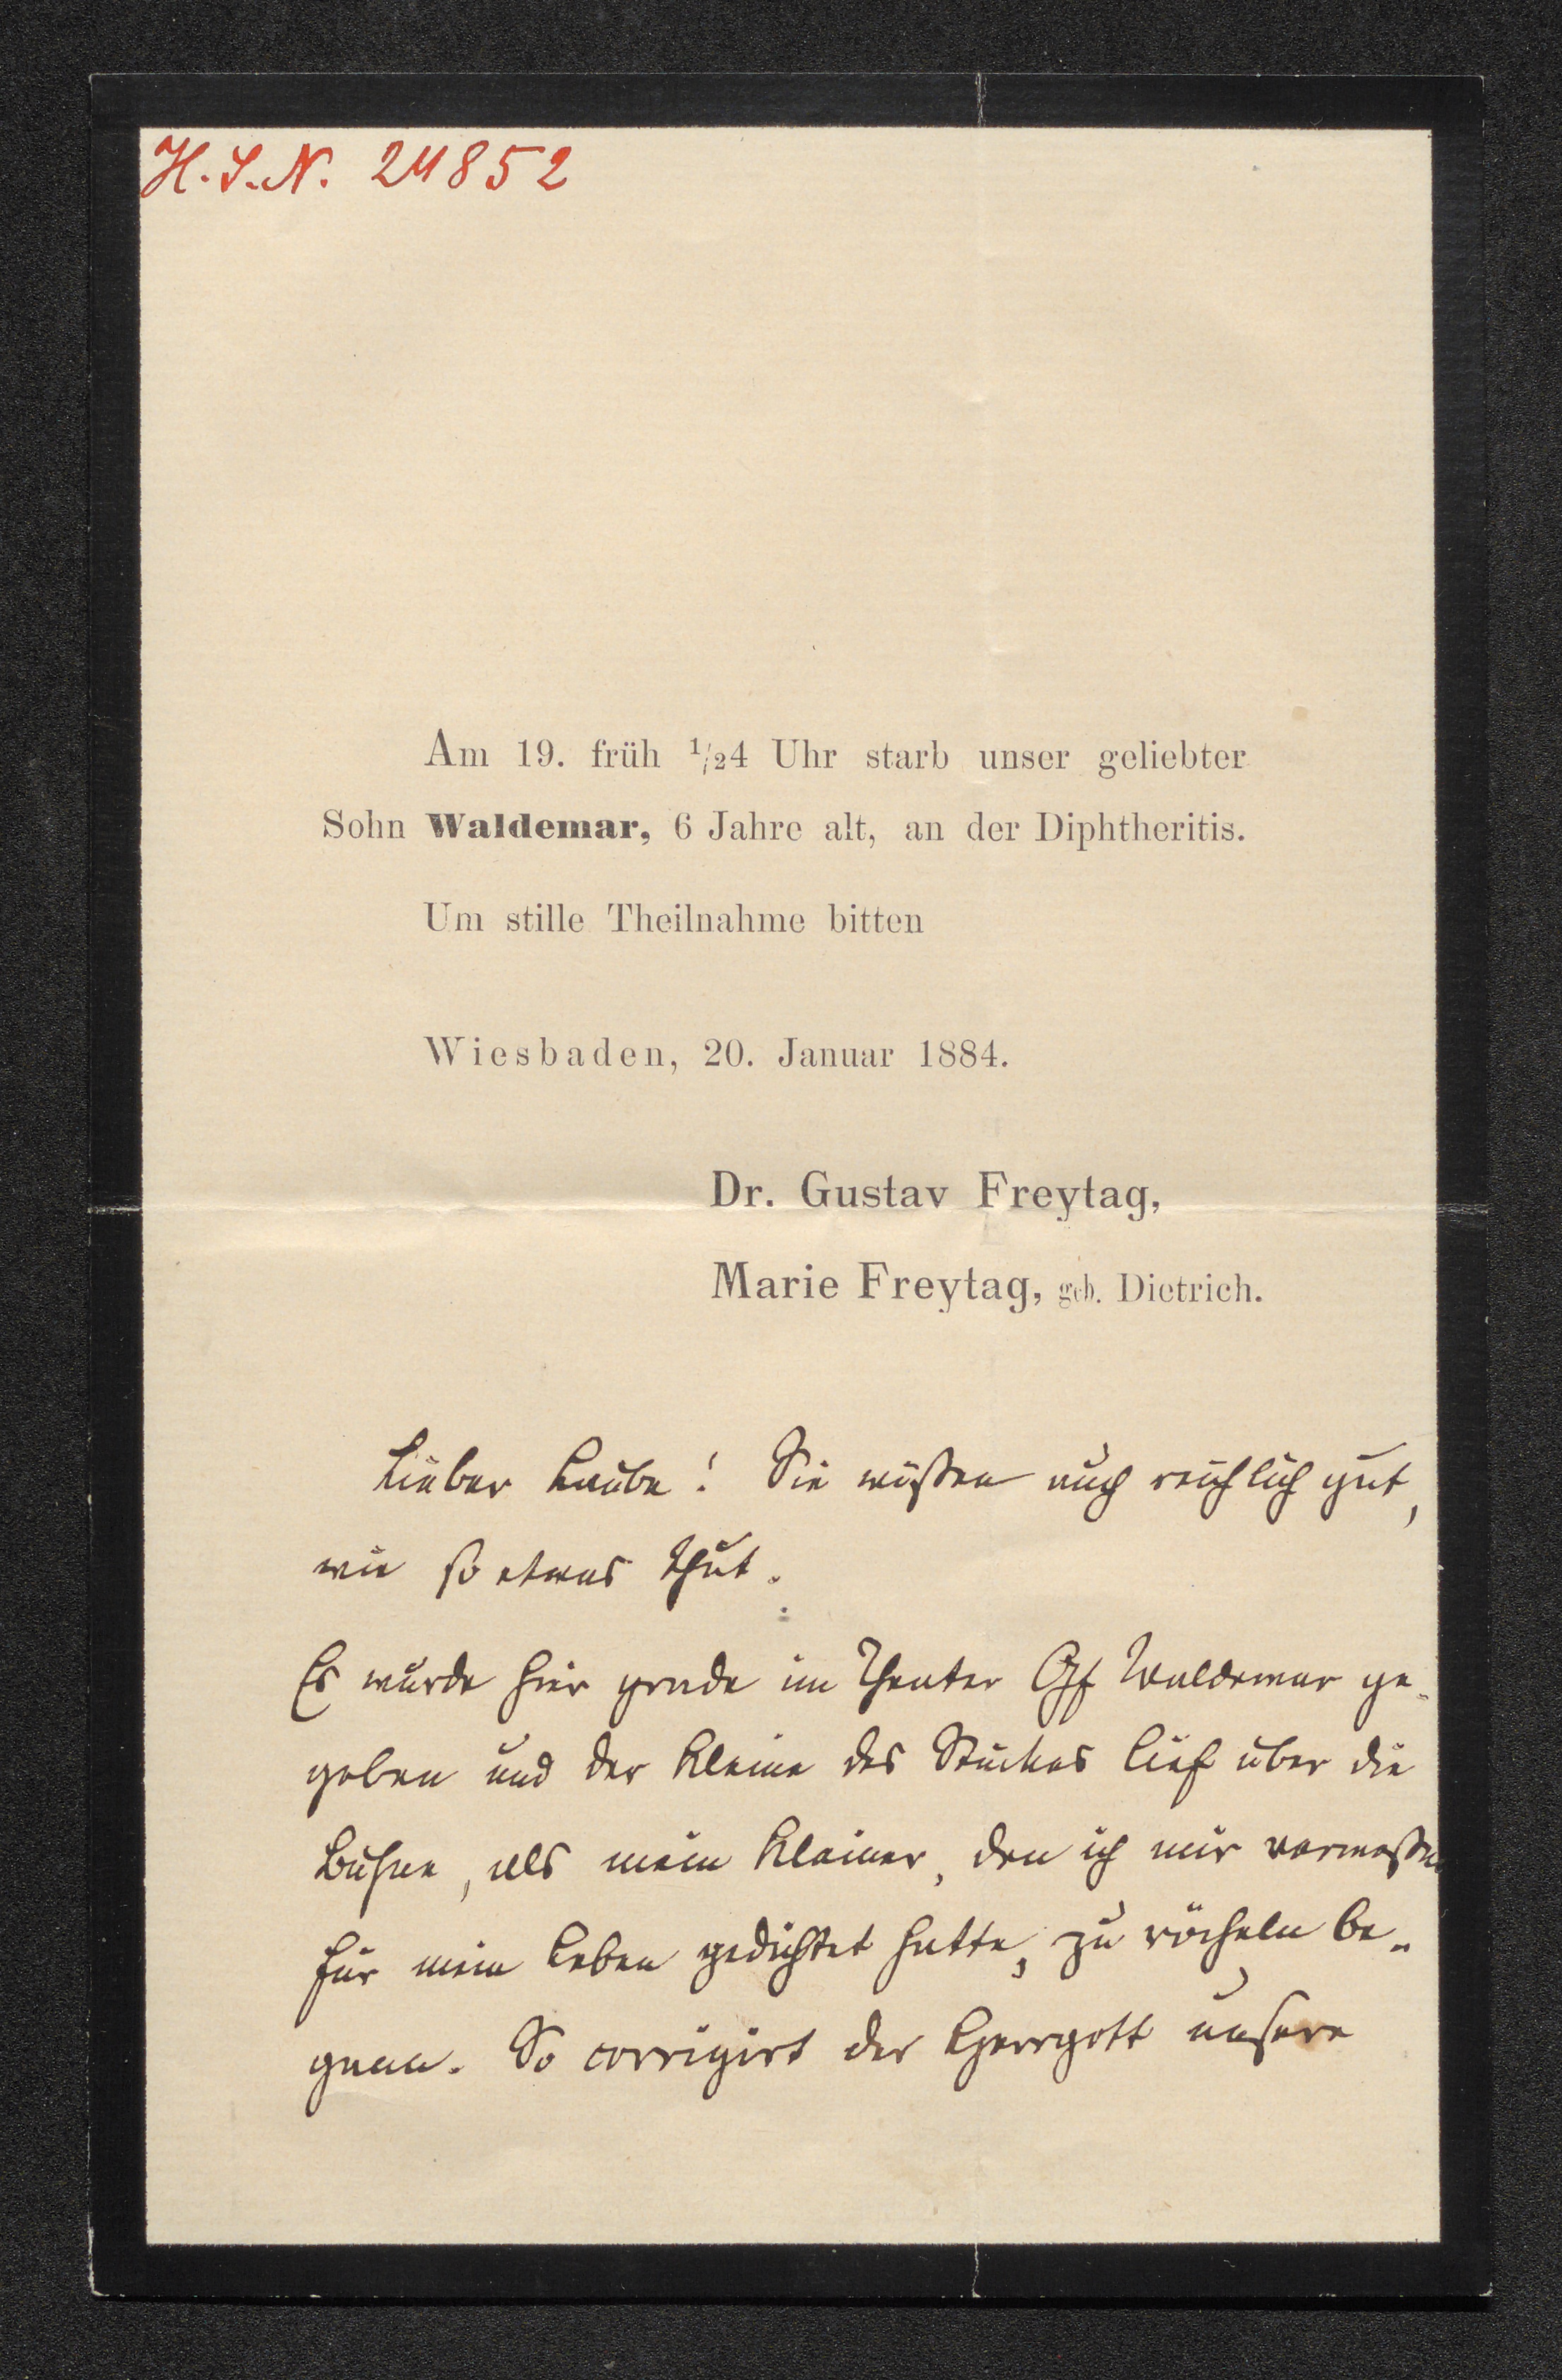 H.I.N. 24852
Am 19. früh ½4 Uhr starb unser geliebter
Sohn Waldemar, 6 Jahre alt, an der Diphtheritis.
Um stille Theilnahme bitten
Wiesbaden, 20. Januar 1884.
Dr. Gustav Freytag,
Marie Freytag, geb. Dietrich.
Lieber Laube! Sie wißen auch reichlich gut,
wie so etwas thut.
Es wurde hier grade im Theater Gf Waldemar ge-
geben und der Kleine des Stückes lief über die
Bühne, als mein Kleiner, den ich mir vermeßen
für mein Leben gedichtet hatte, zu röcheln be-
gann. So corrigirt der Herrgott unsere